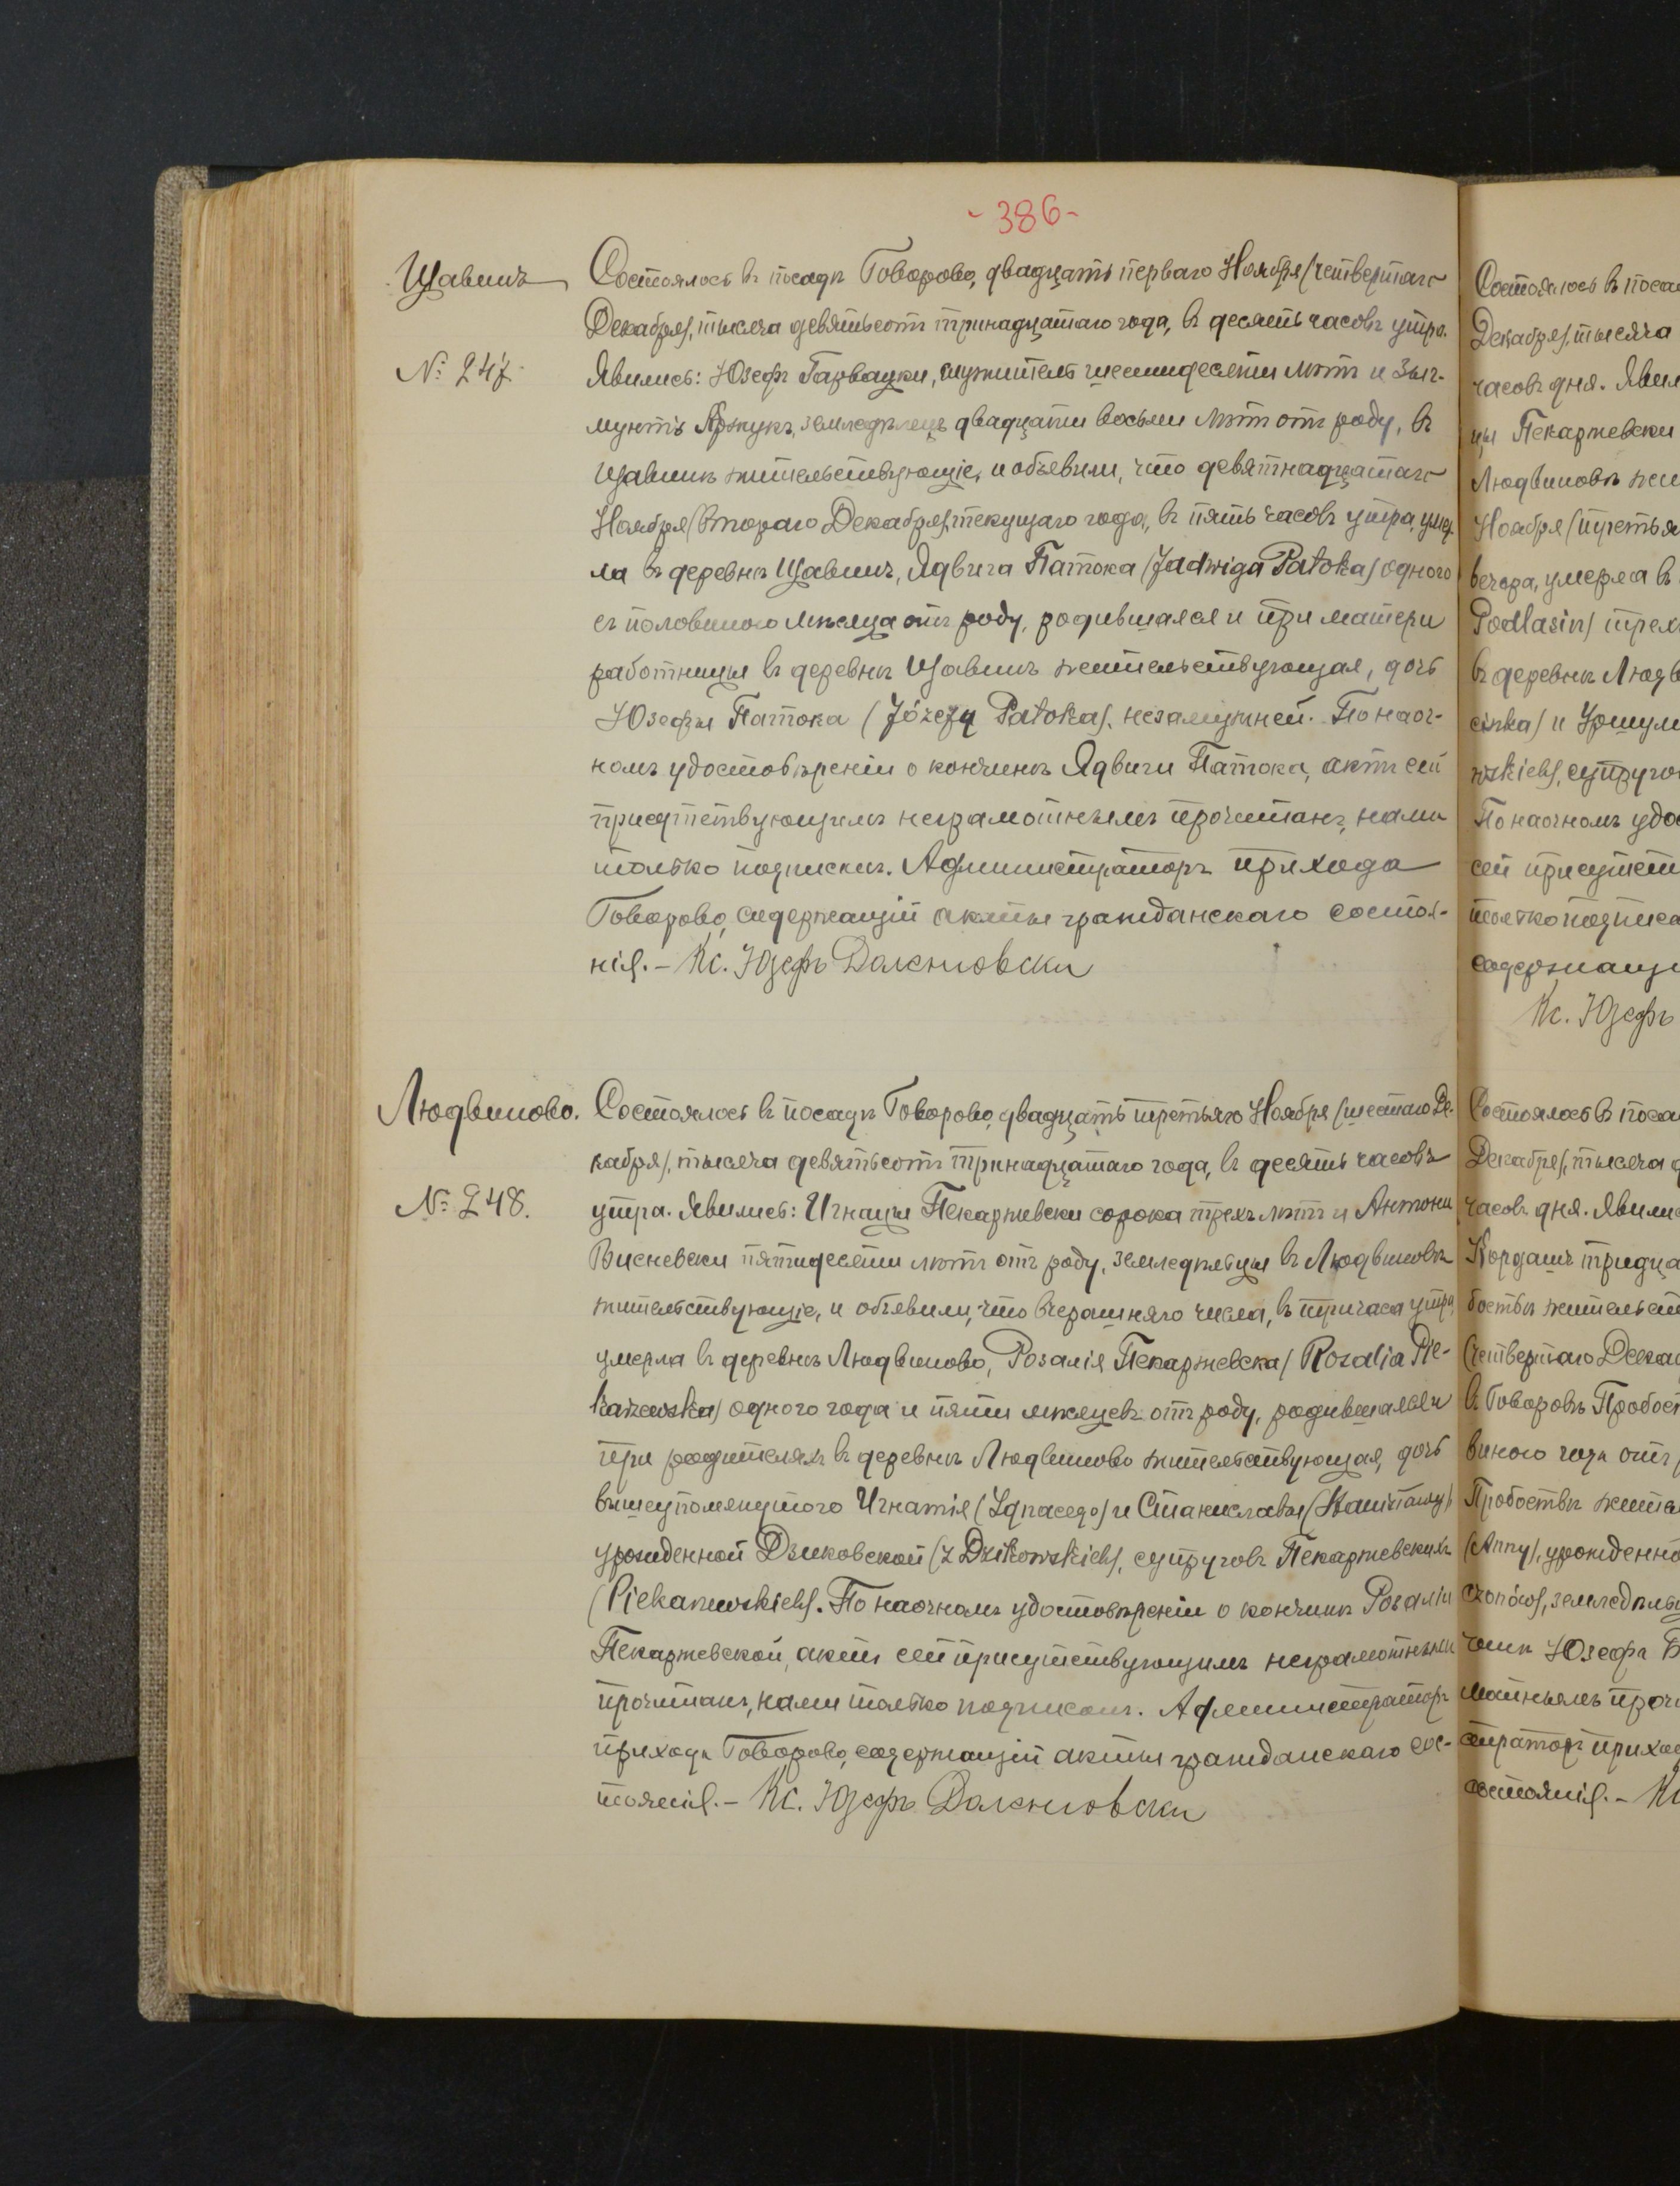 - 386 -
Щавинъ
№ 247.
Состоялось въ посадѣ Говорово, двадцать перваго Ноября (четвертаго
Декабря), тысяча девятьсотъ тринадцатаго года, въ десять часовъ утра.
Явились: Юзефъ Гарвацки, служитель шестидесяти лѣтъ и Зыг-
мунтъ земледѣлецъ двадцати восьми лѣтъ отъ роду, въ
Щавинѣ жительствующіе, и объевили, что девятнадцатаго
Ноября (втораго Декабря), текущаго года, въ пять часовъ утра, умер-
ла въ деревнѣ Щавинъ, Ядвига Патока (Jadwiga Patoka) одного
съ половиною мѣсяца отъ роду, родившаяся и при матери
работницы въ деревнѣ Щавинъ жительствующая, дочь
Юзефы Патока (Józefy Patoka), незамужней. По наоч-
номъ удостовѣреніи о кончинѣ Ядвиги Патока, актъ сей
присутствующимъ неграмотнымъ прочитанъ, нами
только подписанъ. Администраторъ прихода
Говорово, содержащій акты гражданскаго состоя-
нія. - Кс. Юзефъ Даленговски
Людвиново.
№ 248.
Состоялось въ посадѣ Говорово, двадцать третьяго Ноября (шестаго Де-
кабря), тысяча девятьсотъ тринадцатаго года, въ десять часовъ
утра. Явились: Игнацы Пекаржевски сорока трехъ лѣтъ и Антони
Висневски пятидесяти лѣтъ отъ роду, земледѣльцы въ Людвиновѣ
жительствующіе, и объявили, что вчерашняго числа, въ три часа утра,
умерла въ деревнѣ Людвиново, Розалія Пекаржевска (Rozalja Pie-
karzewska) одного года и пяти мѣсяцевъ отъ роду, родившаяся и
при родителяхъ въ деревнѣ Людвиново жительствующая, дочь
вышеупомянутого Игнатія (Ignacego) и Станиславы (Stanisławy)
урожденной Дзиковской (z Dzikowskich), супруговъ Пекаржевскихъ
(Piekarzewskich). По наочномъ удостовѣреніи о кончинѣ Розаліи
Пекаржевской, актъ сей присутствующимъ неграмотнымъ
прочитанъ, нами только подписанъ. Администраторъ
прихода Говорово, содержащій акты гражданскаго сос-
тоянія. - Кс. Юзефъ Даленговски
Состоялось въ поса
Декабря), тысяча
часовъ дня. Явил
цы Пекаржевски
Людвиновѣ жи
Ноября (третья
вечера, умерла въ
Podlasin) трех
въ деревнѣ Людв
cinka) и Уршул
wskich), супруго
По наочномъ удо
сей присутст
только подписа
содержащі
Кс. Юзефъ
Состоялось въ поса
Декабря), тысяча д
часовъ дня. Явили
Кордашъ тридца
боствѣ жительст
(четвертаго Декаб
въ Говоровѣ Пробос
виною года отъ
Пробоствѣ жите
(Anny), урожденно
земледѣльц
чинѣ Юзефа
мотнымъ проч
стратор приход
состоянія. - Кс